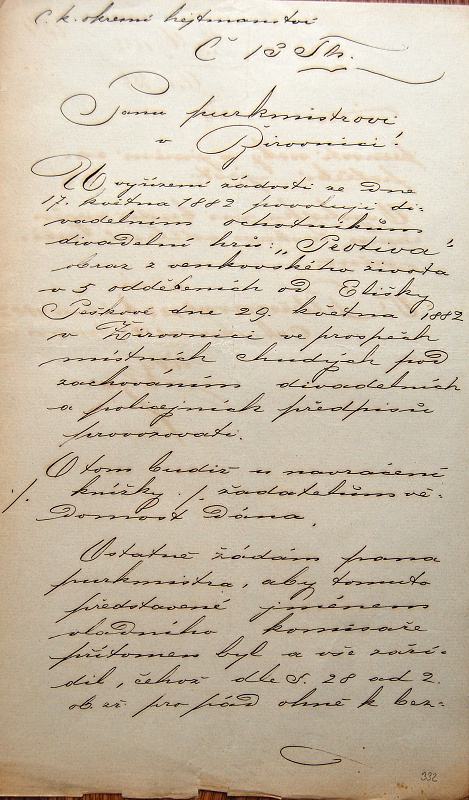 C. k. okresní hejtmanství
Č 13 Th.
Panu purkmistrovi
v Žirovnici!
U vyřízení žádosti ze dne
17. května 1882 povoluji di-
vadelním ochotníkům
divadelní hru: „Peotiva"
obraz z venkovského života
v 5 odděleních od Elišky
Peškové dne 29. května 1882
v Žirovnici ve prospěch
místních chudých pod
zachováním divadelních
a policejních předpisů
provozovati.
O tom budiž u navrácení
knížky ./. žadatelům vě-
./.
domost dána.
Ostatně žádám pana
purkmistra, aby tomuto
představené jménem
vládního komisaře
přítomen byl a vše zaří-
dil, čehož dle §. 28 ad 2.
ob. zř. pro pád ohně k bez-
332